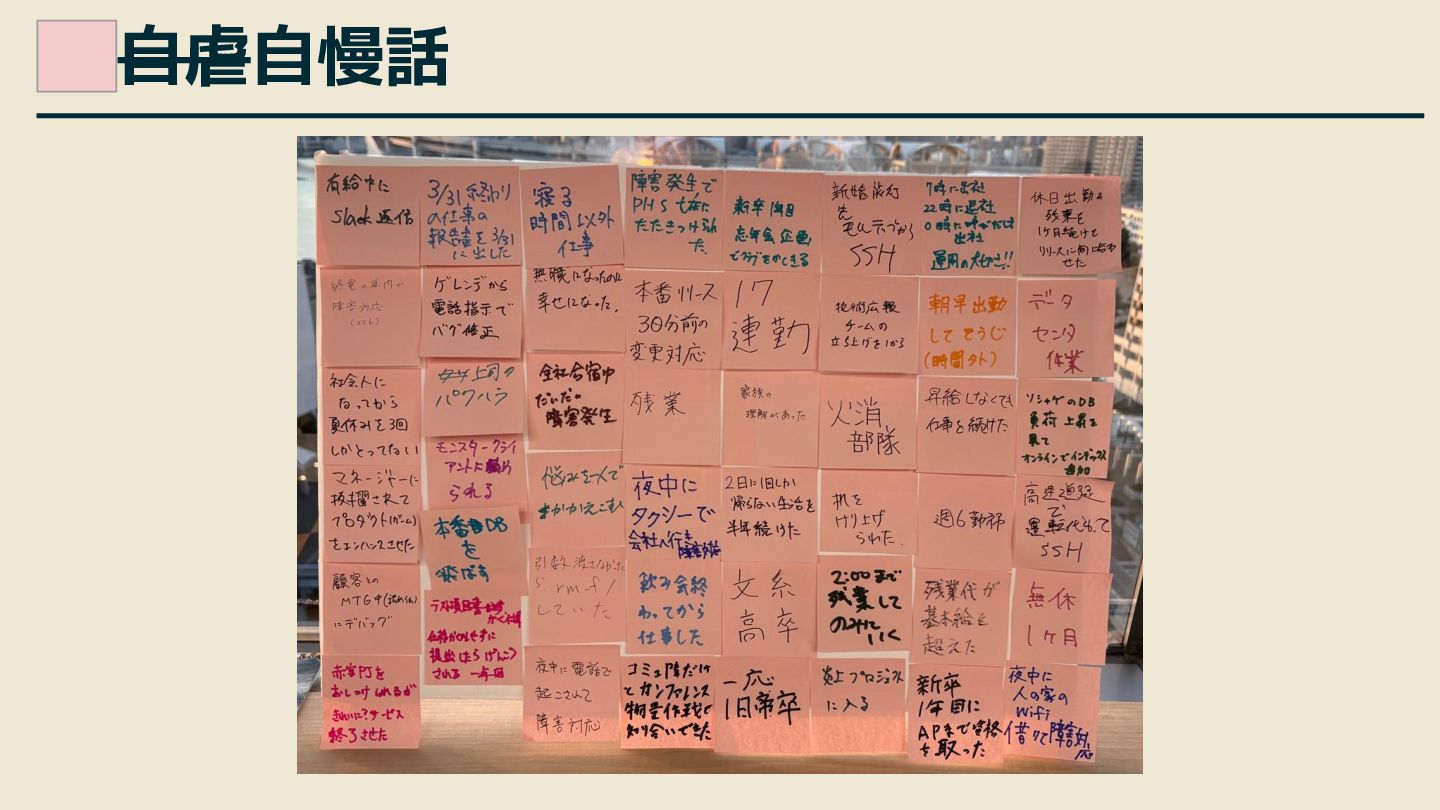 自虐自慢話
有給中に
Slack返信
3/31終わり
の仕事の
報告書を3/31
に出した
寝る
時間以外
仕事
障害発生で
PHS
たたきつけられ
た。
新卒1年目
忘年会企画
新婚旅行
先
SSH
7時に出社
22時に退社
0時に呼びだされ
出社
運用の大切さ!!
休日出勤&
残業を
1ヶ月続けて
リリースに間に合わ
せた
終電の車内で
障害対応
(SSH)
ゲレンデから
電話指示で
バグ修正
無職になったのに
幸せになった。
本番リリース
30分前の
変更対応
17
連勤
技術広報
チームの
立ち上げを1から
朝早出勤
して そうじ
(時間外)
データ
センタ
作業
社会人に
なってから
夏休みを3回
しかとってない
上司の
パワハラ
全社合宿中
だいたい
障害発生
残業
家族の
理解があった
火消
部隊
昇給しなくても
仕事を続けた
ソシャゲのDB
負荷上昇を
見て
オンラインでインデックス
追加
マネージャーに
抜擢されて
プロダクト(ゲーム)
をエンハンスさせた
モンスタークライ
アントに
られる
悩みを一人で
かかえこむ
夜中に
タクシーで
会社へ行き
障害対応
2日に1回しか
帰らない生活を
半年続けた
机を
けり上げ
られた.
週6勤務
高速道路
で
運転代わって
SSH
本番DB
を
飛ばす
顧客との
MTG中(詰められ)
にデバッグ
引数渡さなかった
ら rm -f /
していた
飲み会終
わってから
仕事した
文系
高卒
2:00まで
残業して
のみに
いく
残業代が
基本給を
超えた
無休
1ヶ月
かく仕事
仕様が
提出
される
赤字PJを
おしつけられるが
きれいに?サービス
終了させた
夜中に電話で
起こされて
障害対応
コミュ障だけ
どカンファレンス
物量作戦で
知り合いできた
一応
旧帝卒
炎上プロジェクト
に入る
新卒
1年目に
APまで資格
を取った
夜中に
人の家の
Wifi
借りて障害対
応